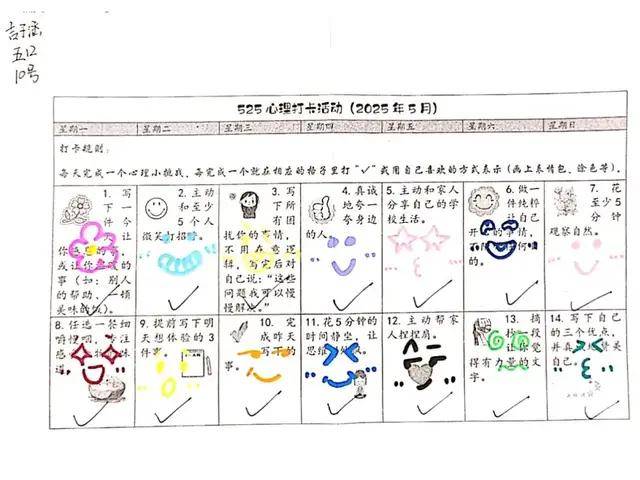 吉子涵
五12
10号
525 心理打卡活动（2025 年 5 月）
星期一 星期二 星期三 星期四 星期五 星期六 星期日
打卡规则：
每天完成一个心理小挑战，每完成一个就在相应的格子里打“✓”或用自己喜欢的方式表示（画上表情包、涂色等）。
1. 写
下一
件今
天让
你
或让你
事（如：别人
的帮助、一顿
美味的饭）。
2. 主动
和至少
5 个人
微笑打招呼。
3. 写
下所
有困
扰你的事情，
不用在意逻
辑，写完后对
自己说：“这些
问题我可以慢
慢解决。”
4. 真诚
地夸一
夸身边
的人。
5. 主动和家人
分享自己的学
校生活。
6. 做一
件纯粹
让自己
开心的事情，
7. 花
至少 5
分钟
观察自然。
8. 任选一餐细
嚼慢咽，专注
感
道
9. 提前写下明
天想体验的 3
件事。
10. 完
成昨天
写下的
事。
11. 花 5 分钟的
时间静坐，让
思绪
12. 主动帮家
人捏捏肩。
13. 摘
抄一段
让你觉
得有力量的文
字。
14. 写下自己
的三个优点，
并真
自己。